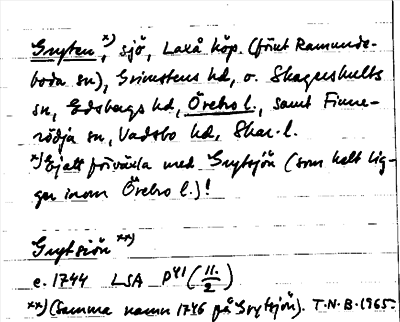 Gryten,ˣ⁾ sjö, Laxå köp. (förut Ramunde-
boda sn), Grimstens hd, o. Skagershults
sn, Edsbergs hd, Örebro l., samt Finne-
rödja sn, Vadsbo hd, Skar. l.
ˣ⁾ Ej att förväxla med Grytsjön (som helt lig-
ger inom Örebro l.)!
Grytsiön ˣˣ⁾
c. 1744 LSA P41 (11./2)
ˣˣ⁾ (Samma namn 1746 på Grytsjön). T.N.B. 1965.